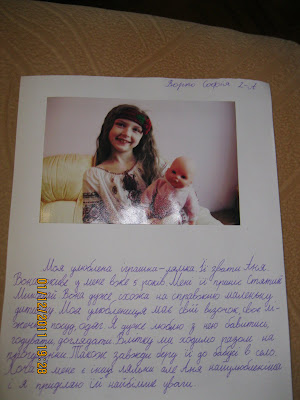 Ворто Софія 2-А
Моя улюблена іграшка-лялька. Її звати Аня.
Вона живе у мене вже 5 років. Мені її приніс Святий
Миколай. Вона дуже схожа на справжню маленьку
дитину. Моя улюблениця має свій візочок, своє ліжечко,
посуд, одяг. Я дуже люблю з нею бавитись,
годувати, доглядати. Влітку ми ходимо разом на
прогулянки. Також завжди беру її до бабусі в село.
Хоча у мене є інші ляльки, але Аня найулюбленіша
і я приділяю їй найбільше уваги.